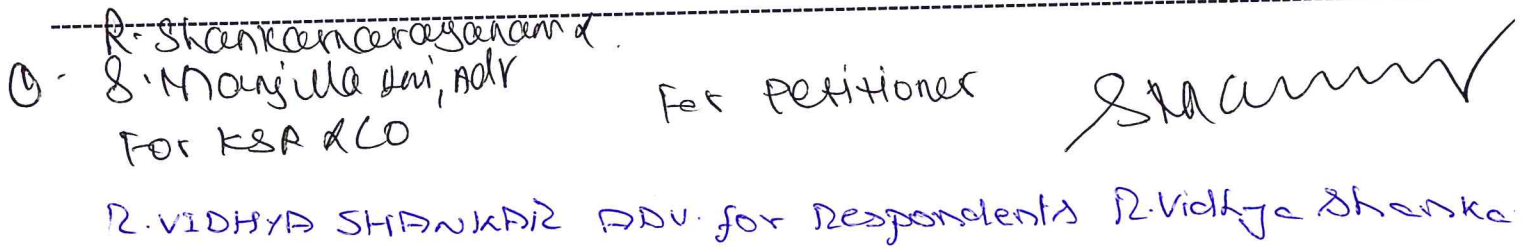 R. Shankarnarayanan &
① S. Manjula Devi, Adv For Petitioner
For KSR & CO
R. VIDHYA SHANKAR ADV. for Respondents R. Vidhya Shanka